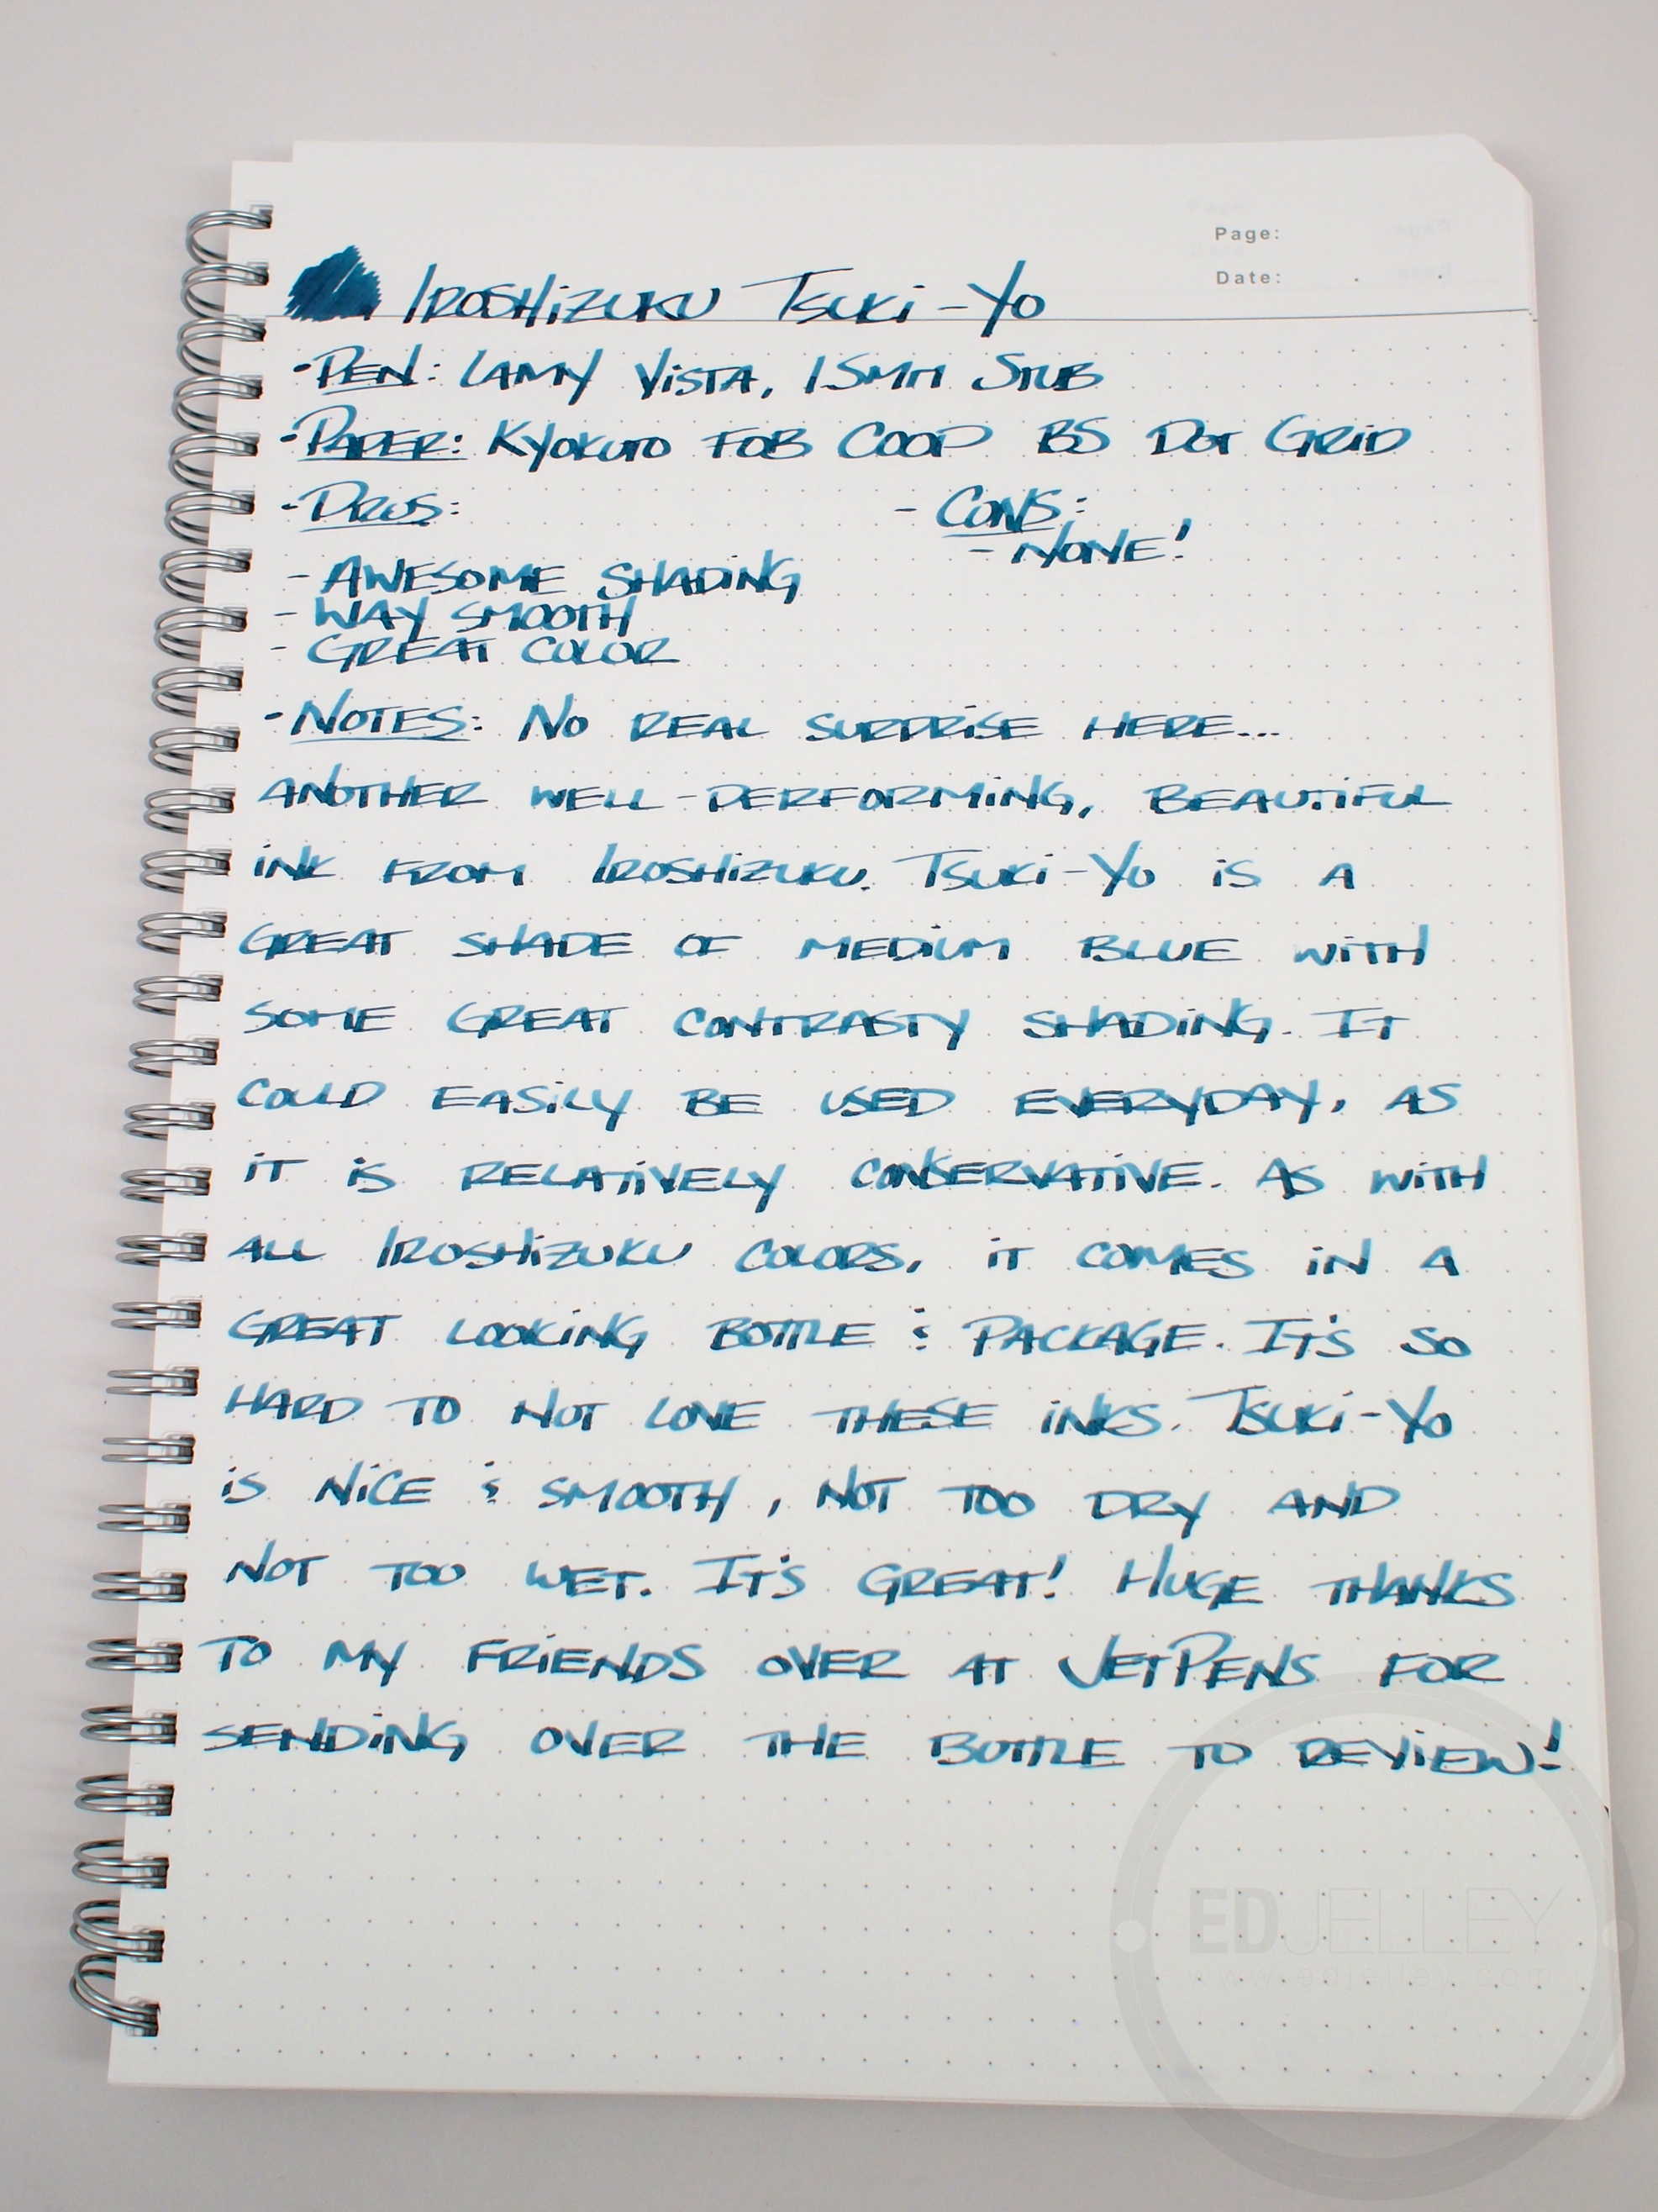 Page:
Date: . .
IROSHIZUKU TSUKI-YO
- PEN: LAMY VISTA, 1.5MM STUB
- PAPER: KYOKUTO FOB COOP B5 DOT GRID
- PROS: - CONS:
- NONE!
- AWESOME SHADING
- WAY SMOOTH
- GREAT COLOR
- NOTES: NO REAL SURPRISE HERE...
ANOTHER WELL-PERFORMING, BEAUTIFUL
INK FROM IROSHIZUKU. TSUKI-YO IS A
GREAT SHADE OF MEDIUM BLUE WITH
SOME GREAT CONTRASTY SHADING. IT
COULD EASILY BE USED EVERYDAY, AS
IT IS RELATIVELY CONSERVATIVE. AS WITH
ALL IROSHIZUKU COLORS, IT COMES IN A
GREAT LOOKING BOTTLE & PACKAGE. IT'S SO
HARD TO NOT LOVE THESE INKS. TSUKI-YO
IS NICE & SMOOTH, NOT TOO DRY AND
NOT TOO WET. IT'S GREAT! HUGE THANKS
TO MY FRIENDS OVER AT JETPENS FOR
SENDING OVER THE BOTTLE TO REVIEW!
EDJELLEY
www.edjelley.com